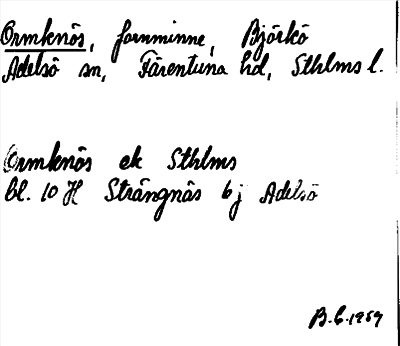 Ormknös, fornminne, Björkö
Adelsö sn, Färentuna hd, Sthlms l.
Ormknös ek Sthlms
bl. 10 H Strängnäs 6 j Adelsö
B.C.1959